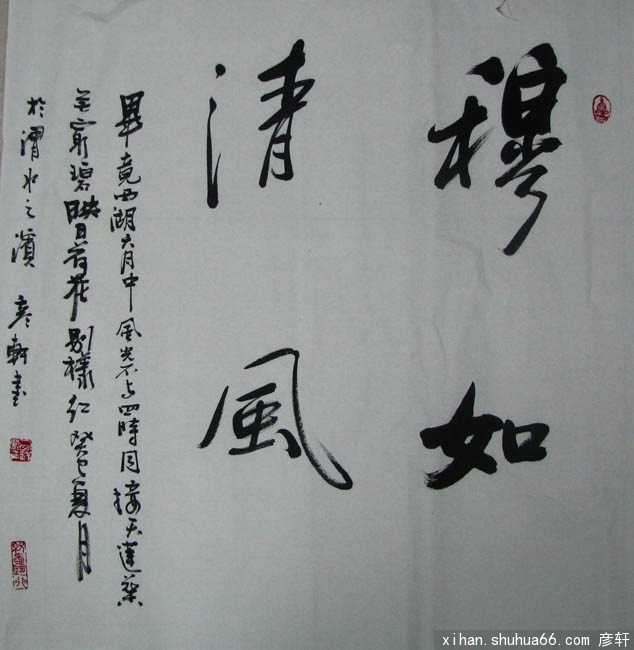 穆如
清風
畢竟西湖六月中風光不与四時同接天蓮葉
無窮碧映日荷花別樣红癸巳夏月
於渭水之濱 彦軒書
xihan.shuhua66.com 彦轩